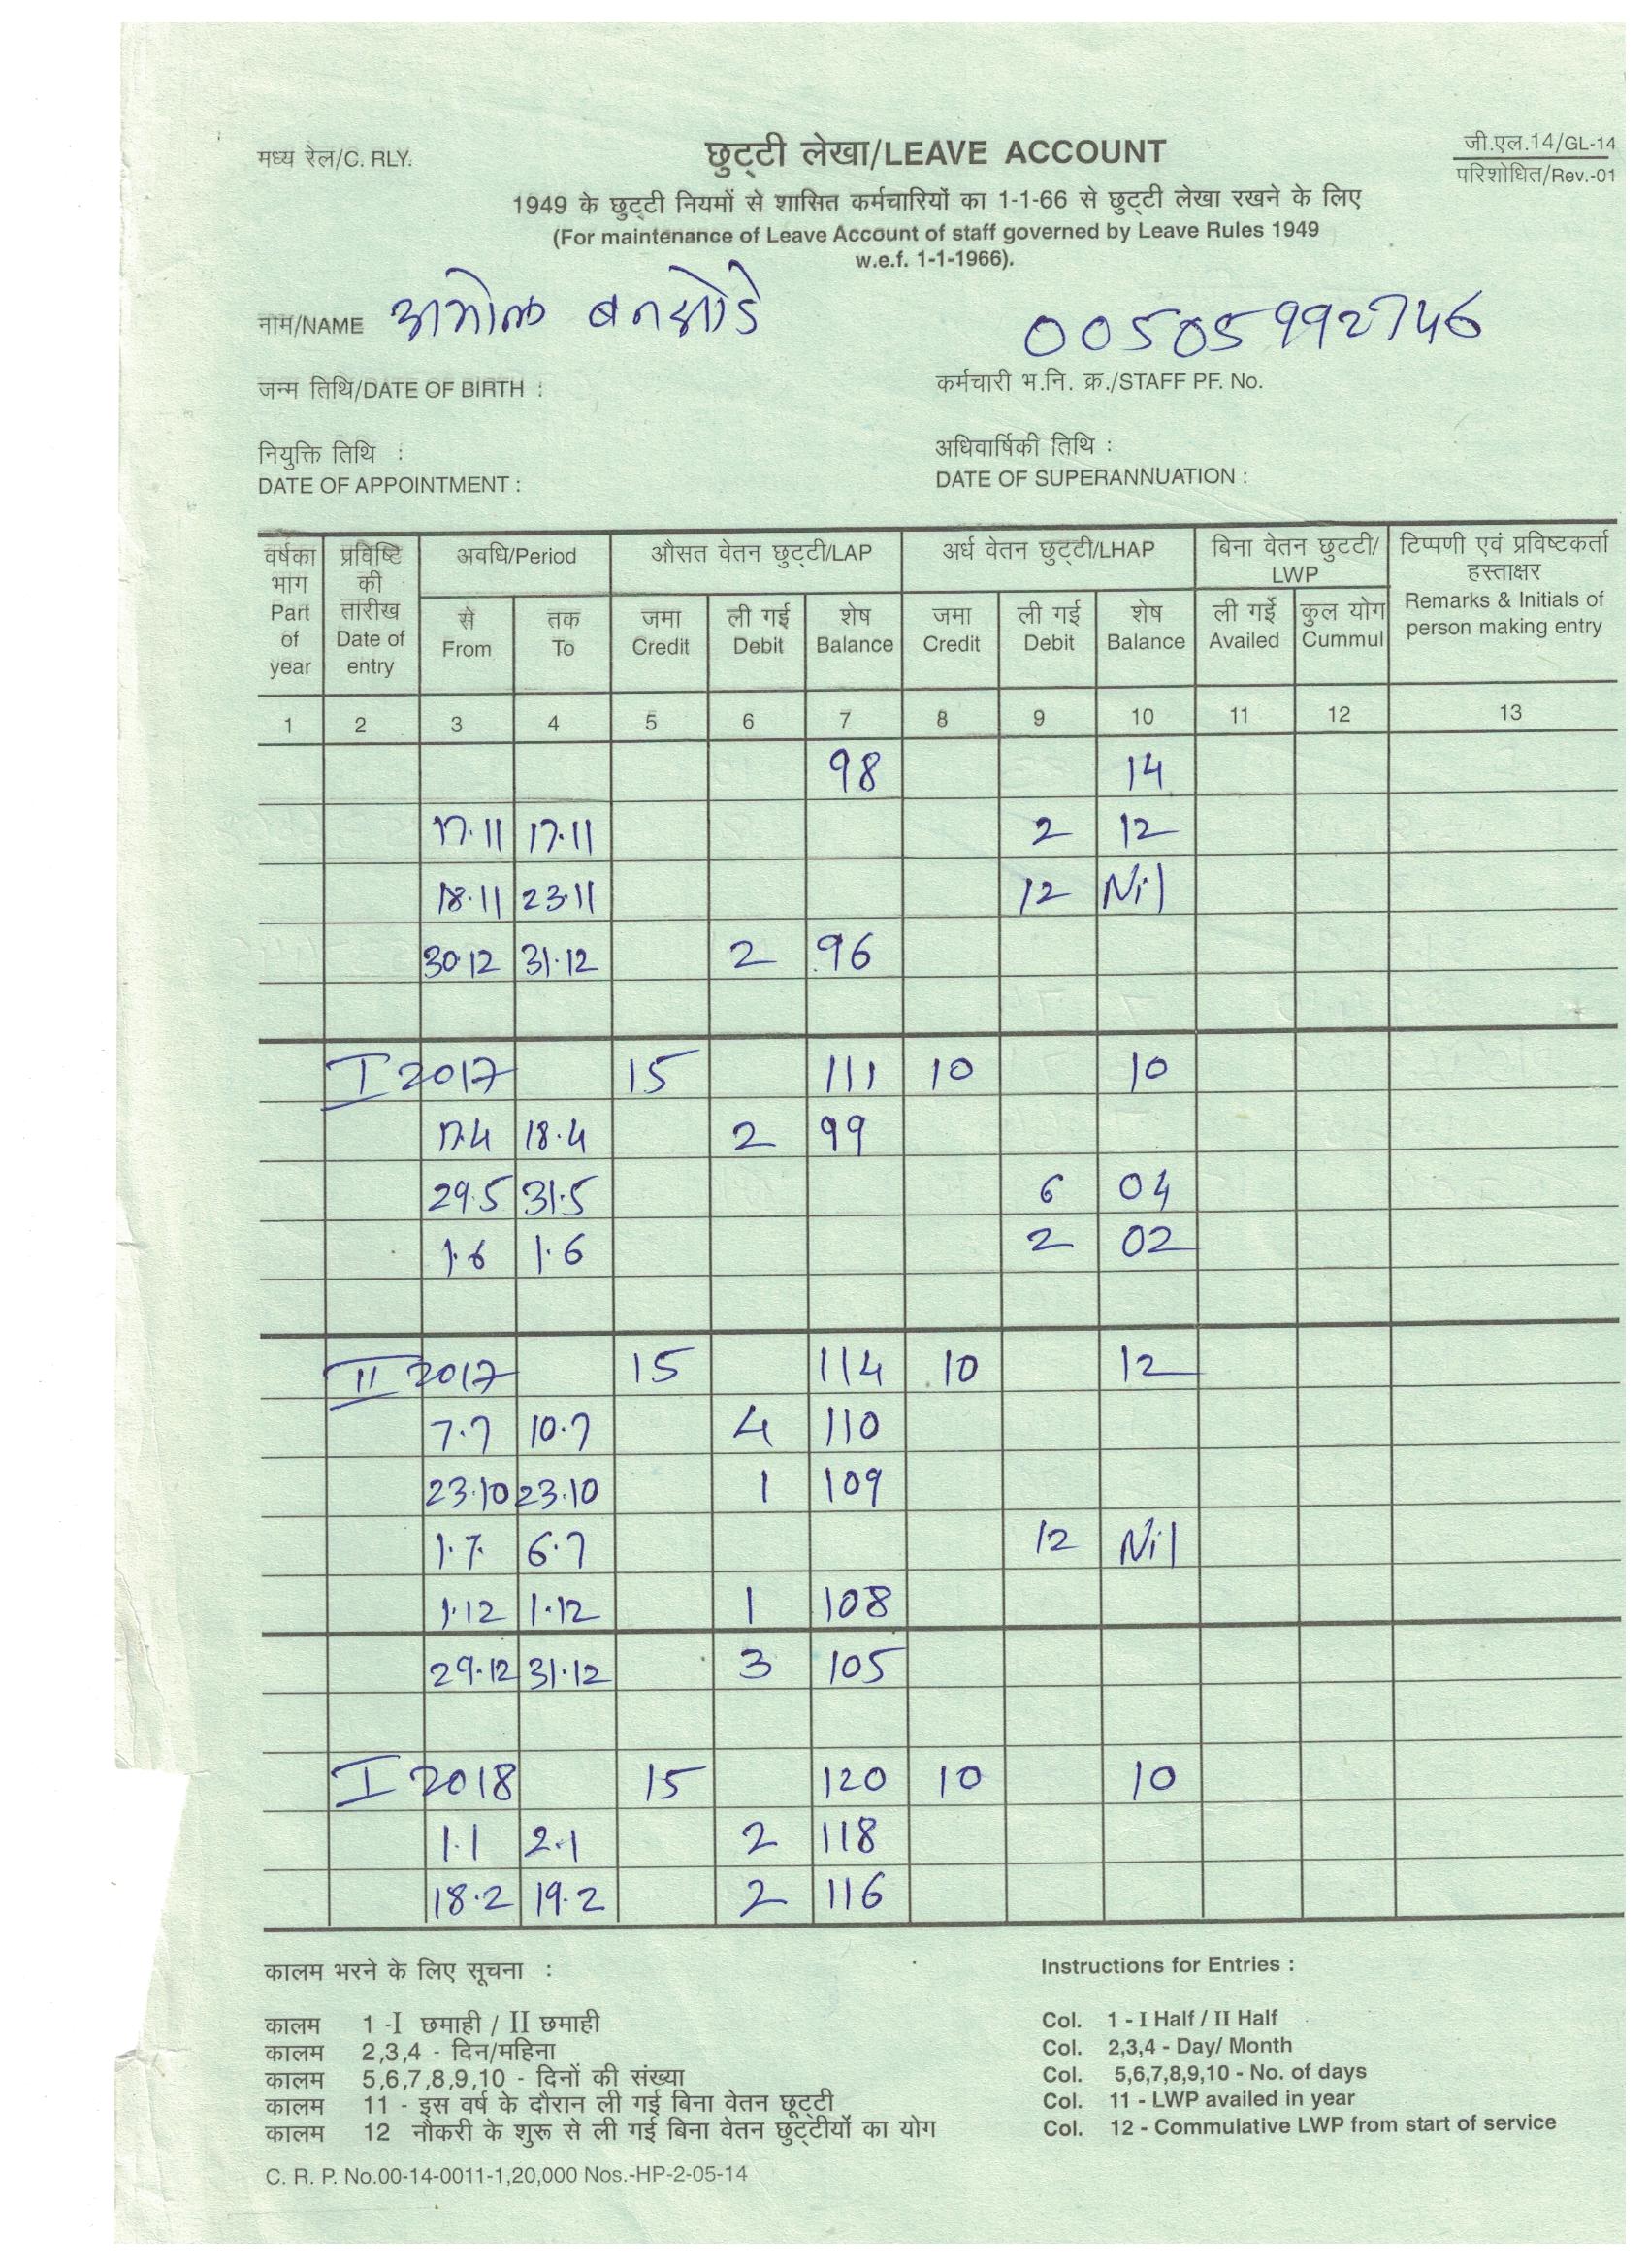 मध्य रेल/C. RLY.
छुट्टी लेखा/LEAVE ACCOUNT
जी.एल.14/GL-14
परिशोधित/Rev.-01
1949 के छुट्टी नियमों से शासित कर्मचारियों का 1-1-66 से छुट्टी लेखा रखने के लिए
(For maintenance of Leave Account of staff governed by Leave Rules 1949
w.e.f. 1-1-1966).
नाम/NAME अमोल बनसोडे
00505992746
जन्म तिथि/DATE OF BIRTH :
कर्मचारी भ.नि. क्र./STAFF PF. No.
नियुक्ति तिथि :
DATE OF APPOINTMENT :
अधिवार्षिकी तिथि :
DATE OF SUPERANNUATION :
वर्षका भाग Part of year
प्रविष्टि की तारीख Date of entry
अवधि/Period
औसत वेतन छुट्टी/LAP
अर्ध वेतन छुट्टी/LHAP
बिना वेतन छुटटी/ LWP
टिप्पणी एवं प्रविष्टकर्ता हस्ताक्षर Remarks & Initials of person making entry
से From तक To जमा Credit ली गई Debit शेष Balance जमा Credit ली गई Debit शेष Balance ली गई Availed कुल योग Cummul
1 2 3 4 5 6 7 8 9 10 11 12 13
98 14
17.11 17.11 2 12
18.11 23.11 12 Nil
30.12 31.12 2 96
I 2017 15 111 10 10
17.4 18.4 2 99
29.5 31.5 6 04
1.6 1.6 2 02
II 2017 15 114 10 12
7.7 10.7 4 110
23.10 23.10 1 109
1.7. 6.7 12 Nil
1.12 1.12 1 108
29.12 31.12 3 105
I 2018 15 120 10 10
1.1 2.1 2 118
18.2 19.2 2 116
कालम भरने के लिए सूचना :
कालम 1 -I छमाही / II छमाही
कालम 2,3,4 - दिन/महिना
कालम 5,6,7,8,9,10 - दिनों की संख्या
कालम 11 - इस वर्ष के दौरान ली गई बिना वेतन छूट्टी
कालम 12 नौकरी के शुरू से ली गई बिना वेतन छुट्टीयों का योग
Instructions for Entries :
Col. 1 - I Half / II Half
Col. 2,3,4 - Day/ Month
Col. 5,6,7,8,9,10 - No. of days
Col. 11 - LWP availed in year
Col. 12 - Commulative LWP from start of service
C. R. P. No.00-14-0011-1,20,000 Nos.-HP-2-05-14